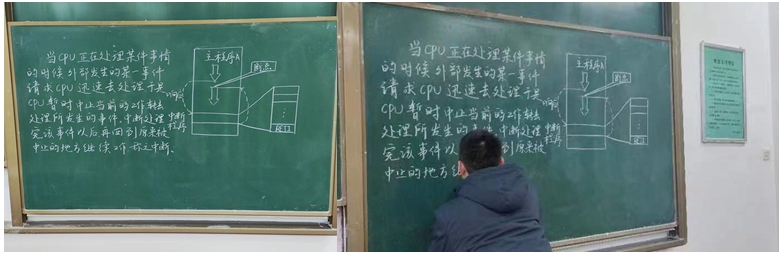 当CPU正在处理某件事情
的时候外部发生的某一事件
请求CPU迅速去处理于是
CPU暂时中止当前的工作转去
处理所发生的事件.中断处理
完该事件以后再回到原来被
中止的地方继续工作.称之中断.
主程序A
断点
响应
中断
程序
返回
当CPU正在处理某件事情
的时候外部发生的某一事件
请求CPU迅速去处理于是
CPU暂时中止当前的工作转去
处理所发生的事件.中断处理
完该事件以
到原来被
中止的地方继
主程序A
断点
响应
中断
程序
返回